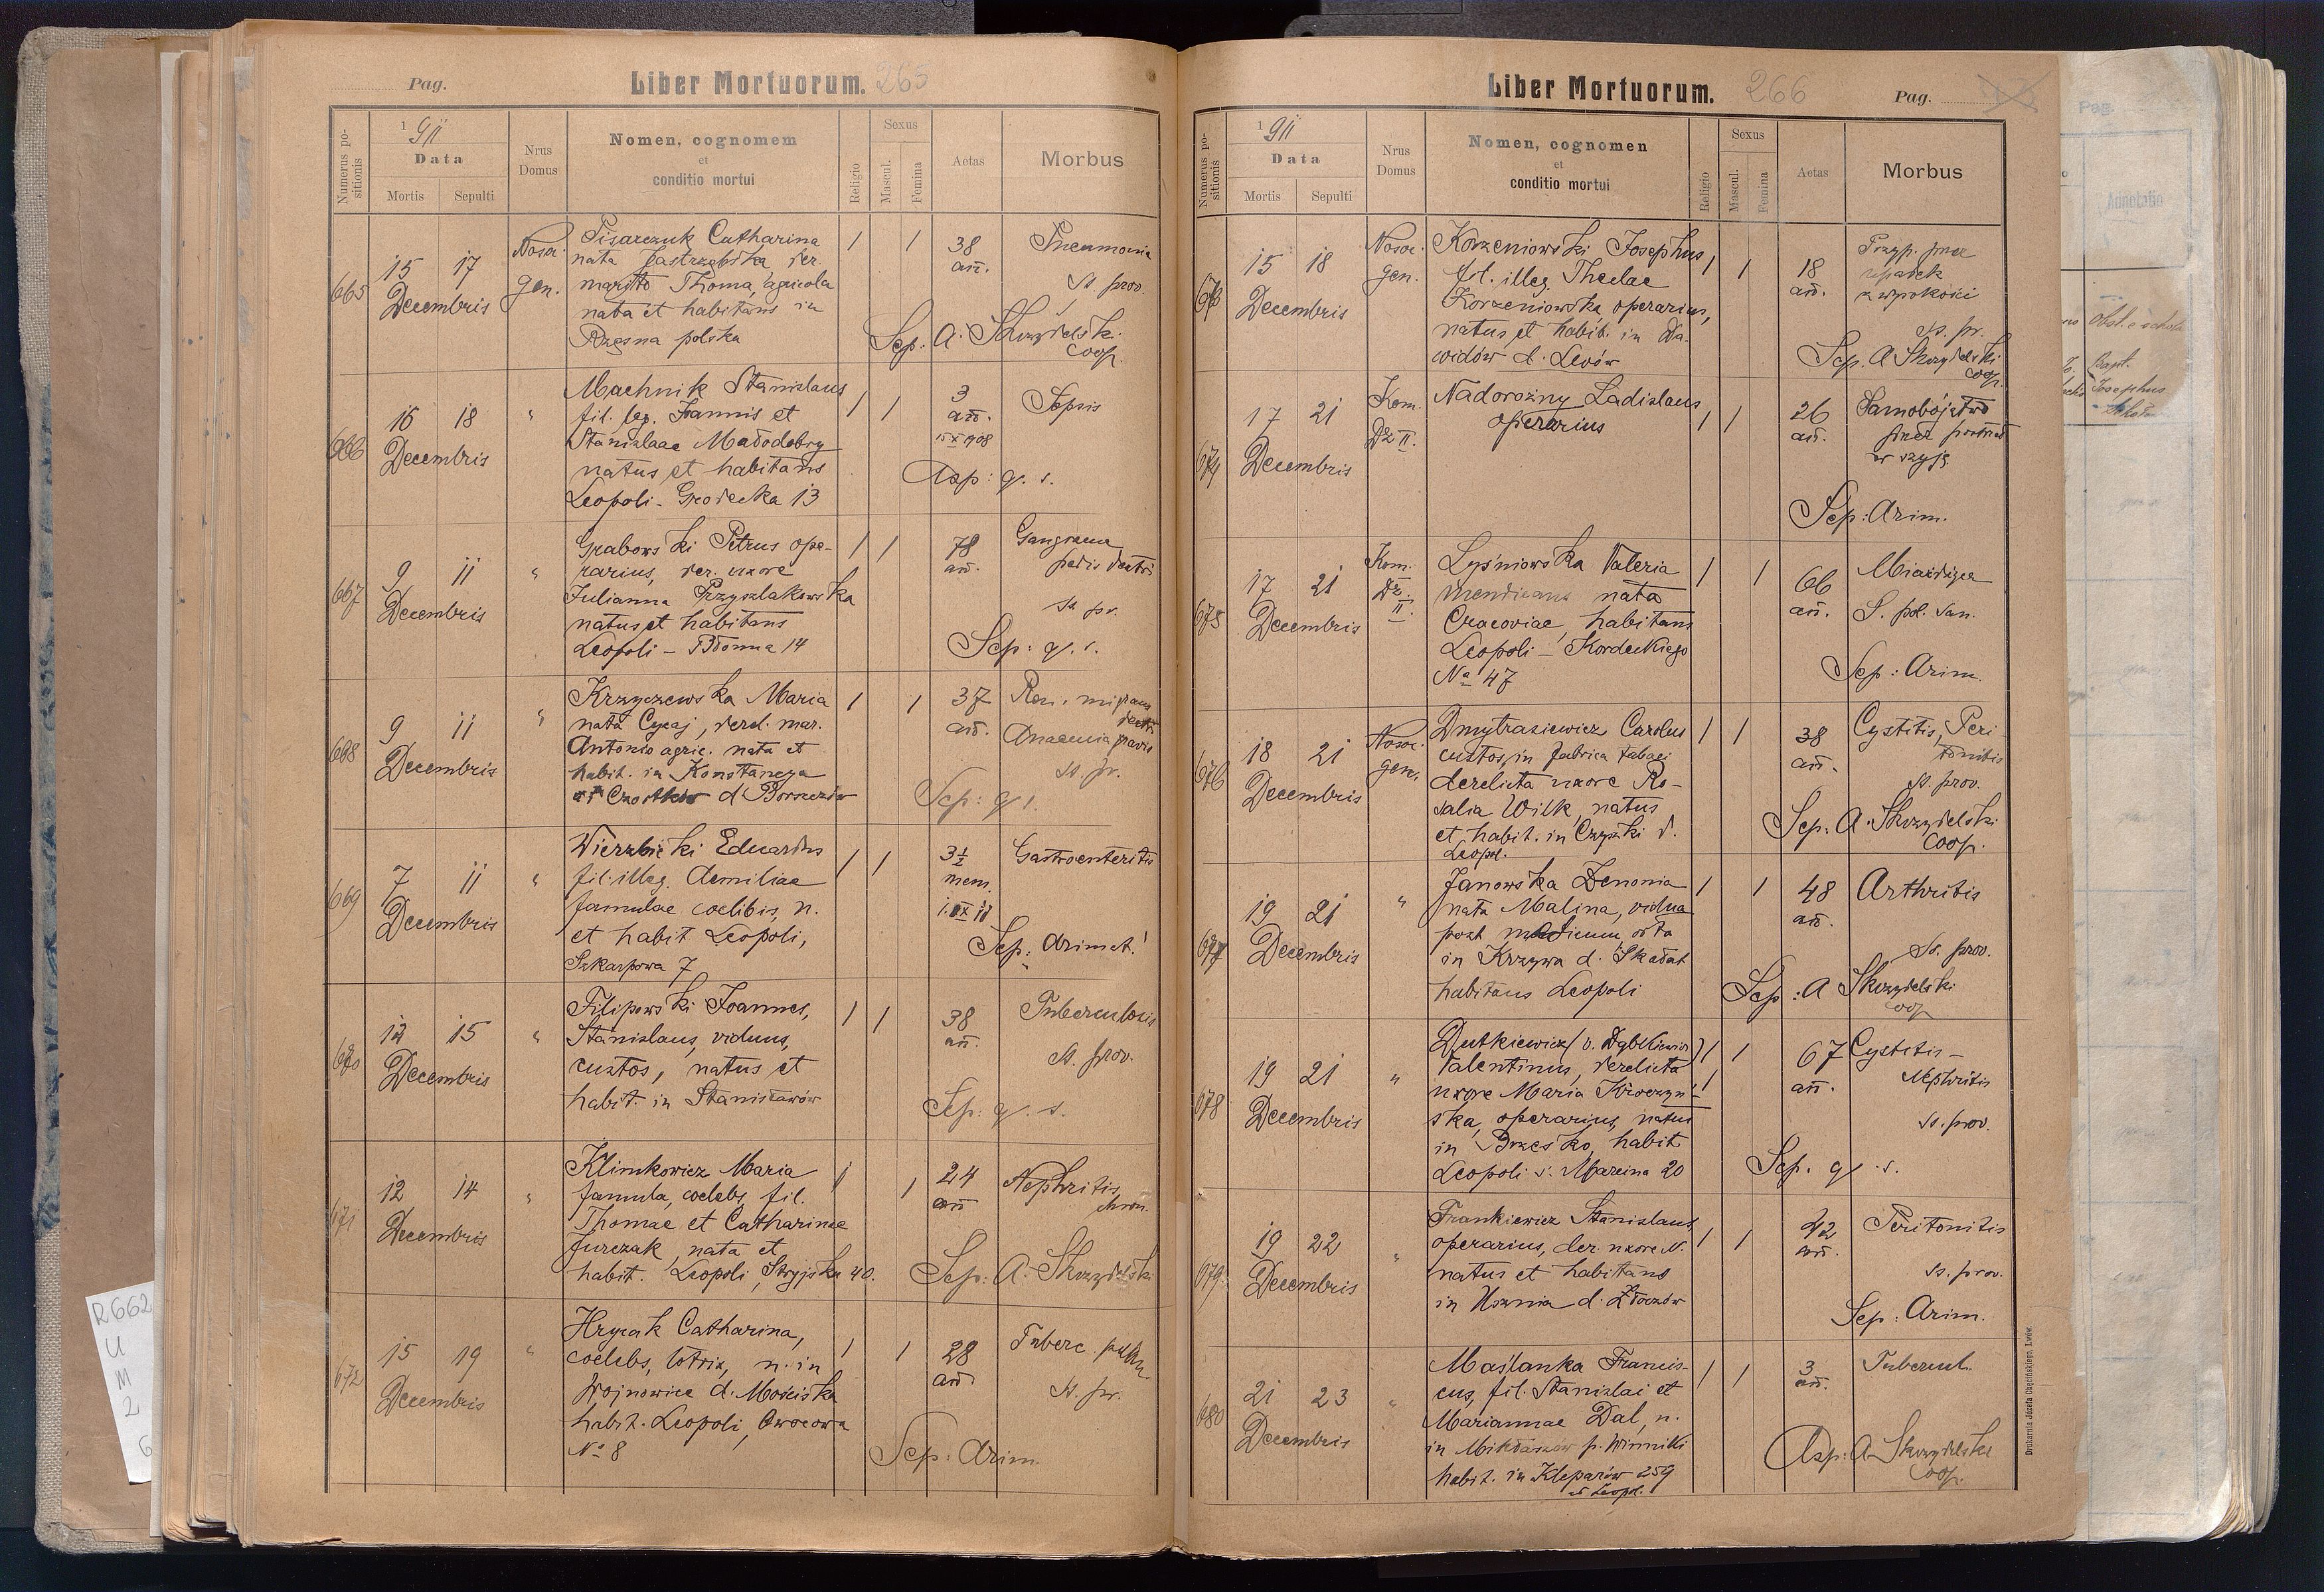 Pag.
Liber Mortuorum. 265
Numerus positionis
1911
Data
Mortis
Sepulti
Nrus Domus
Nomen, cognomem
et
conditio mortui
Religio
Sexus
Mascul.
Femina
Aetas
Morbus
665
15 17
Decembris
Nosoc.
gen.
Pisarczuk Catharina
nata Jastrzębska der.
marito Thoma, agricola
nata et habitans in
Rzęsna polska
1 1
38
an.
Pneumonia
ss. prov.
Sep: A. Skrzydelski
coop.
666
16 18
Decembris
"
Machnik Stanislaus
fil. leg. Joannis et
Stanislaae Małodobry
natus et habitans
Leopoli - Grodecka 13
1 1
3
an.
15 X 1908
Sepsis
Asp: q. s.
667
9 11
Decembris
"
Grabowski Petrus ope-
rarius, der. uxore
Julianna Przyszlakowska
natus et habitans
Leopoli - Błonna 14
1 1
78
an.
Gangraena
pedis dextri
ss. pr.
Sep: q. s.
668
9 11
Decembris
"
Krzyczewska Maria
nata Cycaj, derel. mar.
Antonio agric. nata et
habit. in Konstancya
d. Borszczów
1 1
37
an.
Ren. migrans
dextr.
Anaemia gravis
ss. pr.
Sep: q. s.
669
7 11
Decembris
"
Wierzbicki Eduardus
fil. illeg. Aemiliae
famulae coelibis, n.
et habit Leopoli,
Szkarpowa 7
1 1
3½
mens.
Gastroenteritis
Sep: Arimat.
670
12 15
Decembris
"
Filipowski Joannes,
Stanislaus, viduus,
custos, natus et
habit. in Stanisławów
1 1
38
an.
Tuberculosis
ss. prov.
Sep: q. s.
671
12 14
Decembris
"
Klimkowicz Maria
famula, coelebs, fil.
Thomae et Catharinae
Jurczak, nata et
habit. Leopoli, Stryjska 40.
1 1
24
an
Nephritis
chron.
Sep: A. Skrzydelski
672
15 19
Decembris
"
Hrycak Catharina,
coelebs, lotrix, n. in
Wojnowice d. Mościska
habit. Leopoli, Owocowa
No 8
1 1
28
an
Tuberc. pulm
ss. pr.
Sep: Arim.
Liber Mortuorum. 266
Pag.
Numerus positionis
1911
Data
Mortis
Sepulti
Nrus Domus
Nomen, cognomen
et
conditio mortui
Religio
Sexus
Mascul.
Femina
Aetas
Morbus
673
15 18
Decembris
Nosoc.
gen.
Korzeniowski Josephus
fil. illeg. Theclae
Korzeniowska, operarius,
natus et habit. in Da-
widów d. Lwów
1 1
18
an.
Przyp. przez
upadek
z wysokości
ss. pr.
Sep. A Skrzydelski
coop.
674
17 21
Decembris
Kom.
Dz II.
Nadorożny Ladislaus
operarius
1 1
26
an.
Samobójstwo
przez postrzał
w szyję
Sep: Arim.
675
17 21
Decembris
Kom.
Dz.
II.
Lyśniowska Valeria
mendicans nata
Cracoviae, habitans
Leopoli - Kordeckiego
No 47
1 1
66
an.
Miażdżyca
S. pol. san.
Sep: Arim.
676
18 21
Decembris
Nosoc.
gen.
Dmytrasiewicz Carolus
custos, in fabrica tabaci
derelicta uxore Ro-
salia Wilk, natus
et habit. in Czyszki d.
Leopol.
1 1
38
an.
Cystitis, Peri-
tonitis
ss. prov.
Sep: A. Skrzydelski
coop.
677
19 21
Decembris
"
Janowska Zenonia
nata Malina, vidua
post medicum, orta
in Krzywa d. Skałat
habitans Leopoli
1 1
48
an.
Arthritis
ss. prov.
Sep: A Skrzydelski
coop
678
19 21
Decembris
"
Dutkiewicz (v. Dąbkiewicz)
Valentinus, derelicta
uxore Maria Krowczyń-
ska, operarius, natus
in Brzesko, habit
Leopoli s. Marcina 20
1 1
67
an.
Cystitis -
Nephritis
ss. prov.
Sep. q. s.
679
19 22
Decembris
"
Frankiewicz Stanislaus
operarius, der. uxore N.
natus et habitans
in Usznia d. Złoczów
1 1
42
an.
Peritonitis
ss. prov.
Sep: Arim.
680
21 23
Decembris
"
Maślanka Francis-
cus, fil. Stanislai et
Mariannae Dal, n.
in Mikłaszów p. Winniki
habit. in Kleparów 259
ad Leopol.
1 1
3
an.
Tubercul.
Asp: A. Skrzydelski
coop.
Drukarnia Józefa Chęcińskiego, Lwów.
Pag.
Adnotatio
Josephus
R662
U
M
2
6